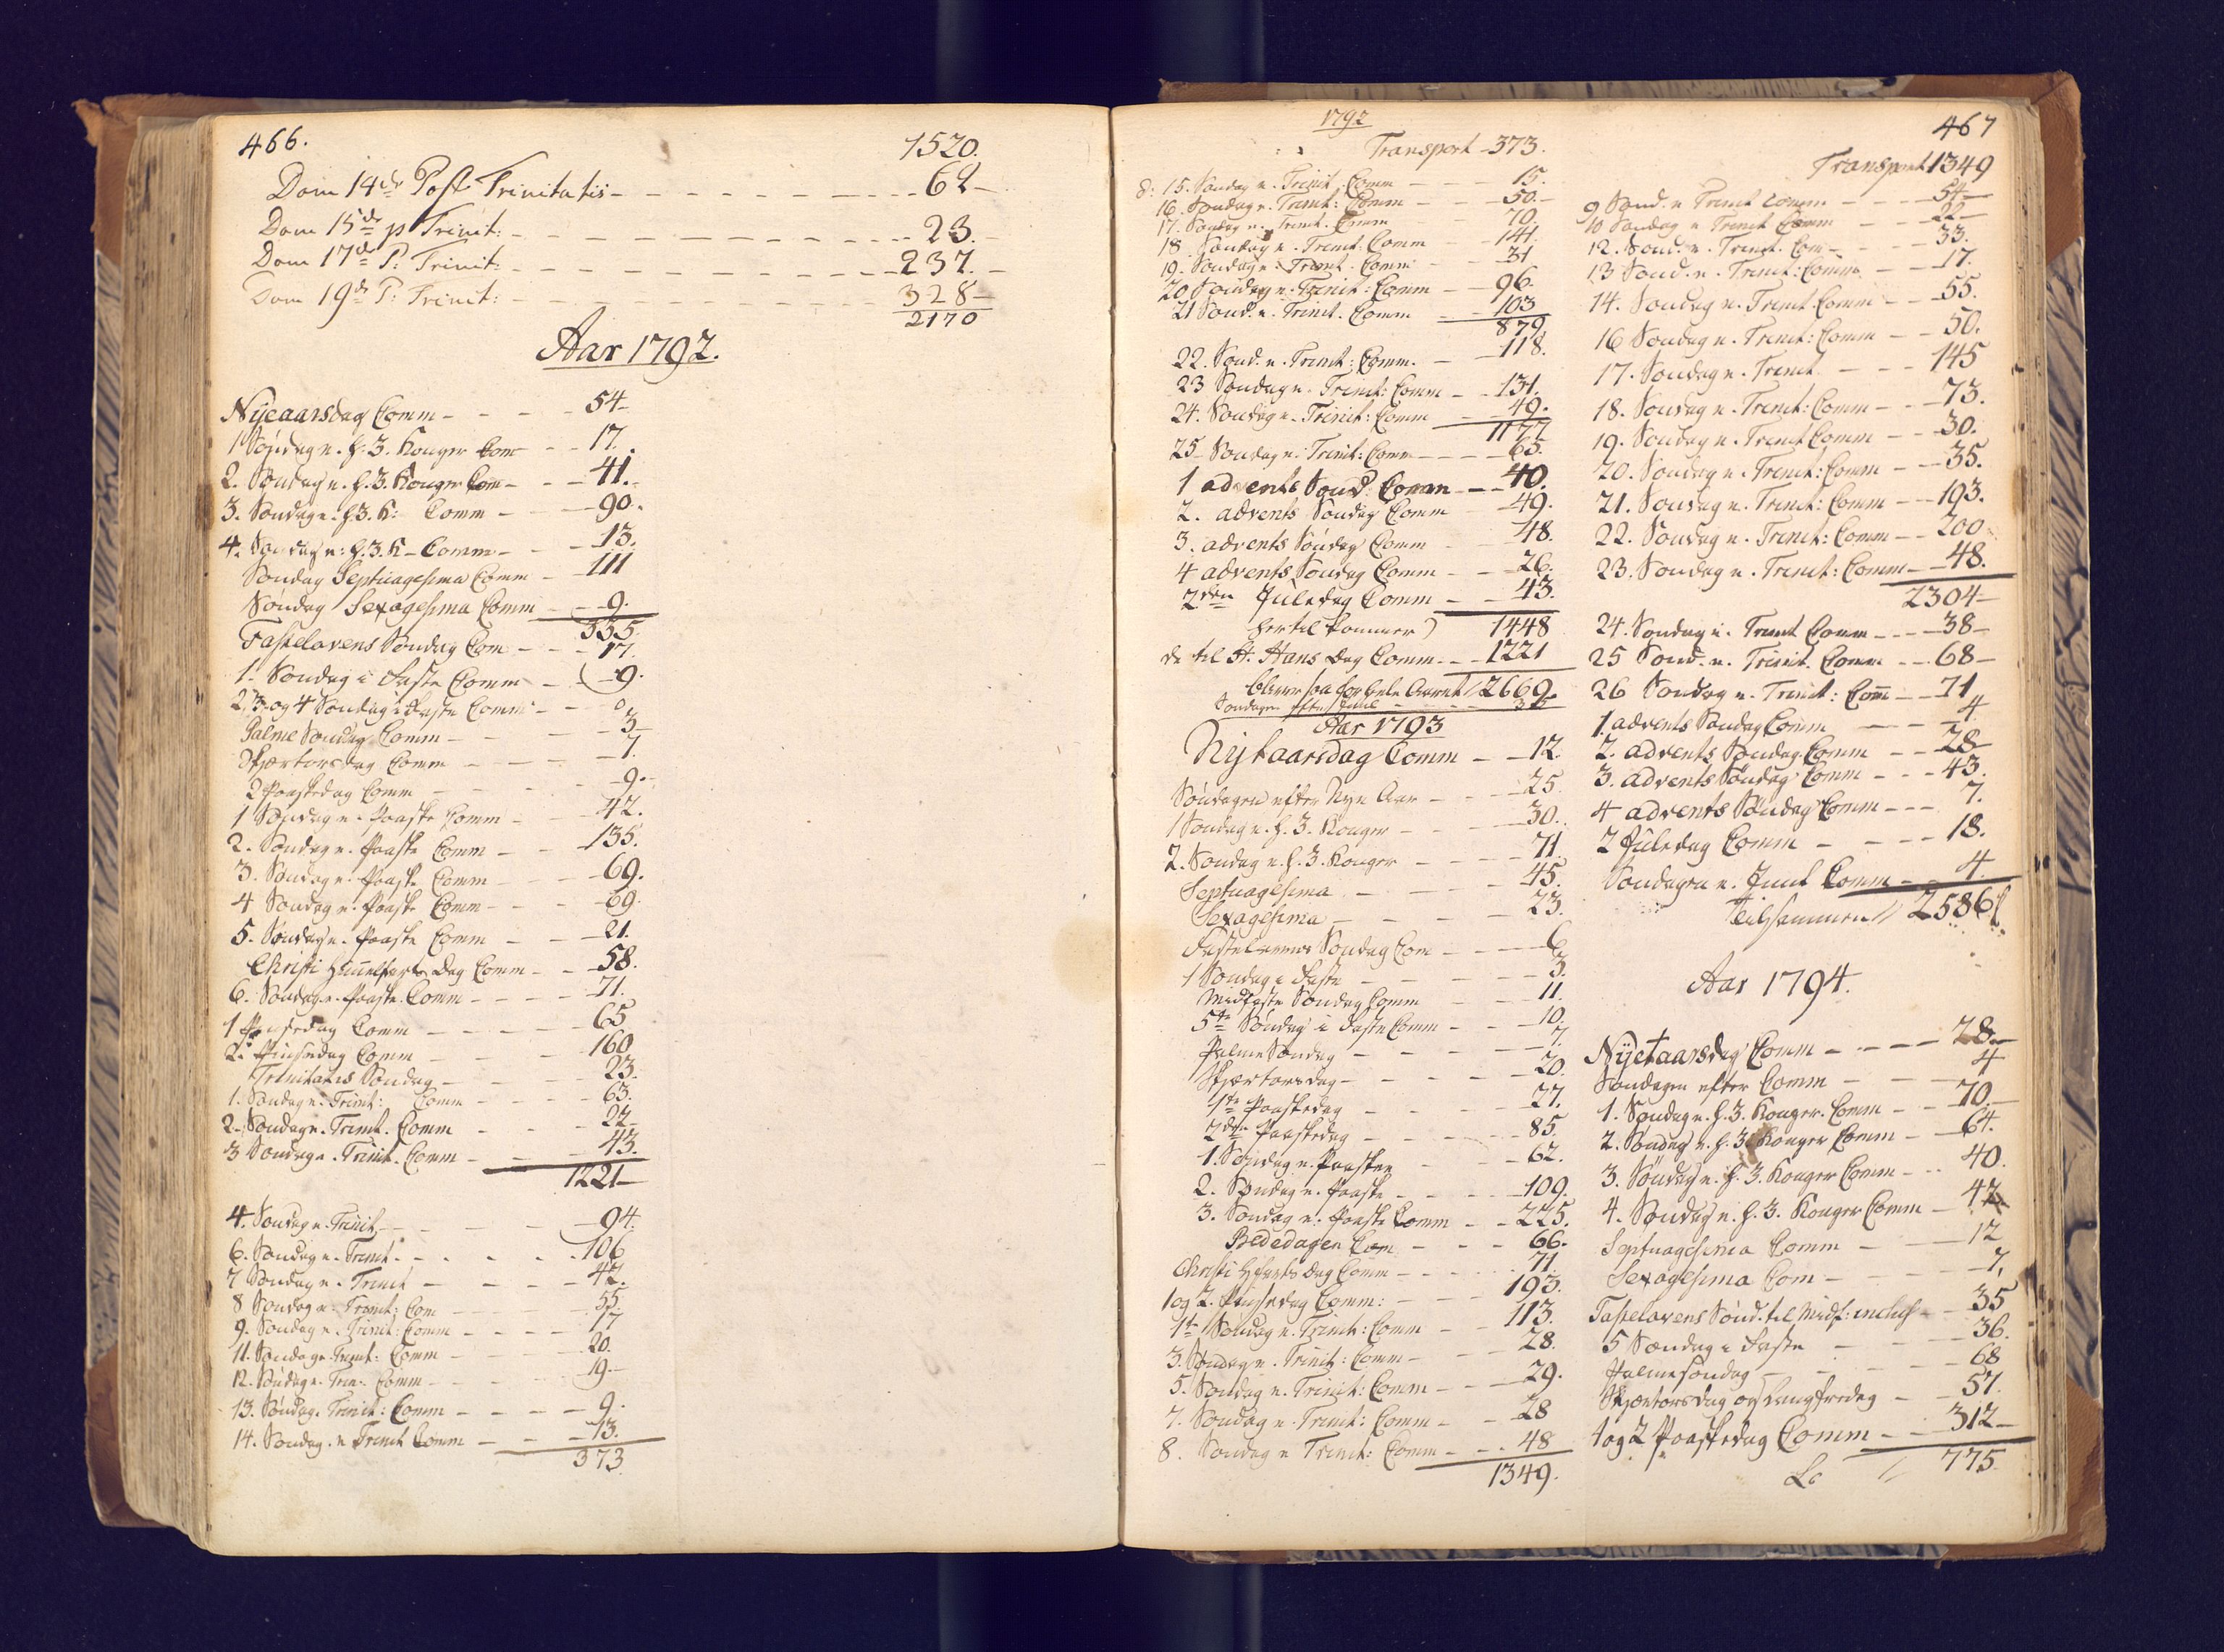 466.
1520.
Dom 14de Post Trinitatis - - - 62 -
Dom 15de p Trinit: - - - 23. -
Dom 17de P: Trinit: - - - 237. -
Dom 19de P: Trinit: - - - 328 -
2170
Aar 1792.
Nyeaarsdag Comm - - - 54 -
1 Søndag e. h. 3. Konger Com - - 17.
2. Søndag e. h. 3. Konger Com - - 41. -
3. Søndag e. h. 3. K: Comm - - 90. -
4. Søndag e: h. 3. K - Comm - - 13.
Søndag Septuagesima Comm - 111
Søndag Sexagesima Comm - - 9.
335.
Fastelavens Søndag Com - - - 17.
1. Søndag i Faste Comm - - 9.
2. 3. og 4 Søndag i Faste Comm - - 0
Palme Søndag Comm - - 3
Skjærtorsdag Comm - - - 7.
2 Paaskedag Comm - - 9. -
1 Søndag e. Paaske Comm - - 42.
2. Søndag e. Paaske Comm - - 135.
3. Søndag e. Paaske Comm - - 69.
4 Søndag e. Paaske Comm - - 69.
5. Søndag e. Paaske Comm - - 21.
Christi Himmelfarts Dag Comm - - 58.
6. Søndag e. Paaske Comm - - - 71.
1 Pinsedag Comm - - - 65
2. Pinsedag Comm - - - 160
Trinitatis Søndag - - - 23.
1. Søndag e. Trinit: Comm - - - 63.
2. Søndag e. Trinit. Comm - - - 22 -
3 Søndag e. Trinit. Comm - - - 43.
1221 -
4. Søndag e. Trinit. - - - 94.
6. Søndag e. Trinit - - - 106
7 Søndag e. Trinit - - - 42.
8 Søndag e. Trinit: Com - - - 55.
9. Søndag e. Trinit: Comm - - - 17
11. Søndag e. Trinit: Comm - - - 20.
12. Søndag e. Trin. Comm - - - 19. -
13. Søndag e. Trinit: Comm - - - 9.
14. Søndag. e Trinit Comm - - - 13.
373
1792
Transport - 373.
15. Søndag e. Trinit. Comm - - - 15.
16. Søndag e. Trinit: Comm - - 50. -
17. Søndag e. Trinit. Comm - - 70.
18. Søndag e. Trinit: Comm - - 141.
19. Søndag e. Trinit. Comm - - 31
20 Søndag e. Trinit: Comm - - 96.
21 Sønd. e. Trinit. Comm - - 103
879.
22. Sønd. e. Trinit: Comm. - - 118.
23 Søndag e. Trinit: Comm - - 131.
24. Søndag e. Trinit: Comm - - 49.
1177
25 - Søndag e. Trinit: Comm - - - 65.
1 advents Sønd. Comm - - 40.
2. advents Søndag Comm - 49.
3. advents Søndag Comm - 48.
4 advents Søndag Comm - - 26.
2den Juledag Comm - - 43.
hertil kommer) 1448
de til St. Hans Dag Comm. - - 1221
bliver saa for hele Aaret // 2669.
Søndagen efter Juul - - -
Aar 1793
Nytaarsdag Comm - - 12.
Søndagen efter Nye Aar - - - 25
1 Søndag e. h. 3. Konger - - - 30.
2. Søndag e. h. 3. Konger - - - 71
Septuagesima - - - 45.
Sexagesima - - - 23.
Fastelavens Søndag Com - - - 6
1 Søndag i Faste - - - 3.
Midfaste Søndag Comm - - 11.
5te Søndag i Faste Comm - - 10.
Palme Søndag - - - 7.
Skjærtorsdag - - - 20.
1te Paaskedag - - - 27.
2den Paaskedag - - - 85
1. Søndag e. Paasken - - 62.
2. Søndag e. Paaske - - - 109.
3. Søndag e. Paaske Comm - - 225.
Bededagen Com - - - 66.
Christi Hfarts Dag Comm - - - 71.
1 og 2. Pinsedag Comm: - - - 193.
1te Søndag e. Trinit: Comm - - 113.
3. Søndag e. Trinit: Comm - - - 28.
5. Søndag e. Trinit: Comm - - 29.
7. Søndag e. Trinit: Comm - - 28
8. Søndag e Trinit: Comm - - - 48
1349.
467
Transport 1349
9 Sønd. e Trinit Comm - - - 54 -
10 Søndag e Trinit Comm - - 22 -
12. Sønd. e. Trinit. Com - - - 33.
13 Sønd. e. Trinit: Comm - - 17.
14. Søndag e. Trinit Comm - - 55.
16 Søndag e. Trinit: Comm - - 50.
17. Søndag e. Trinit. - - - 145
18. Søndag e. Trinit: Comm - - 73.
19. Søndag e. Trinit Comm - - 30.
20. Søndag e. Trinit: Comm - - 35.
21. Søndag e. Trinit: Comm - - 193.
22. Søndag e. Trinit: Comm - - 200
23. Søndag e. Trinit: Comm - - 48.
2304 -
24. Søndag e. Trinit Comm - - - 38 -
25 Sønd. e. Trinit. Comm - - 68 -
26 Søndag e. Trinit: Com - - 71
1. advents Søndag Comm - - 4
2. advents Søndag Comm - - 28
3. advents Søndag Comm - - - 43.
4 advents Søndag Comm - - - 7.
2 Juledag Comm - - - 18.
Søndagen e. Juul Comm - - 4.
Tilsammen // 2586
Aar 1794.
Nyetaarsdag Comm - - - 28. -
Søndagen efter Comm - - - 4
1. Søndag e. h. 3. Konger. Comm - - 70. -
2. Søndag e. h. 3 Konger Comm - - 64.
3. Søndag e. h. 3. Konger Comm - - 40.
4. Søndag e. h. 3. Konger Comm - 42
Septuagesima Comm - - 12
Sexagesima Com - - - 7,
Fastelavens Sønd. til Midf: inclus - - 35
5 Søndag i Faste - - - 36.
Palmesøndag - - - 68
Skjærtorsdag og Langfredag - - 57.
1 og 2 Paaskedag Comm - - 312 -
775